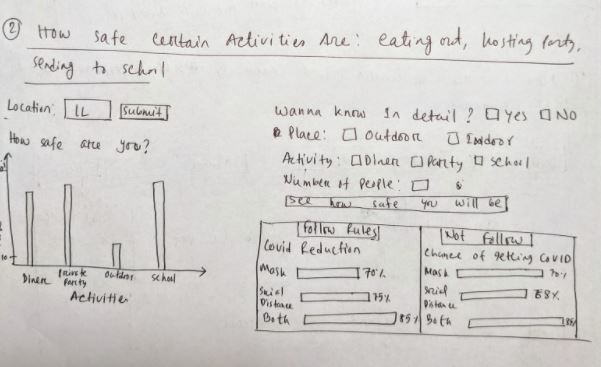 2 How safe certain Activities Are: eating out, hosting party,
sending to school
Location: IL Submit
How safe are you?
10
Diner Private Party Outdoor School
Activities
Wanna know In detail? Yes NO
Place: Outdoor Indoor
Activity: Diner Party School
Number of People:
See how safe you will be
Follow Rules
Covid Reduction
Mask 70%
Social Distance 75%
Both 85%
Not follow
Chance of getting COVID
Mask 70%
Social Distance 68%
Both